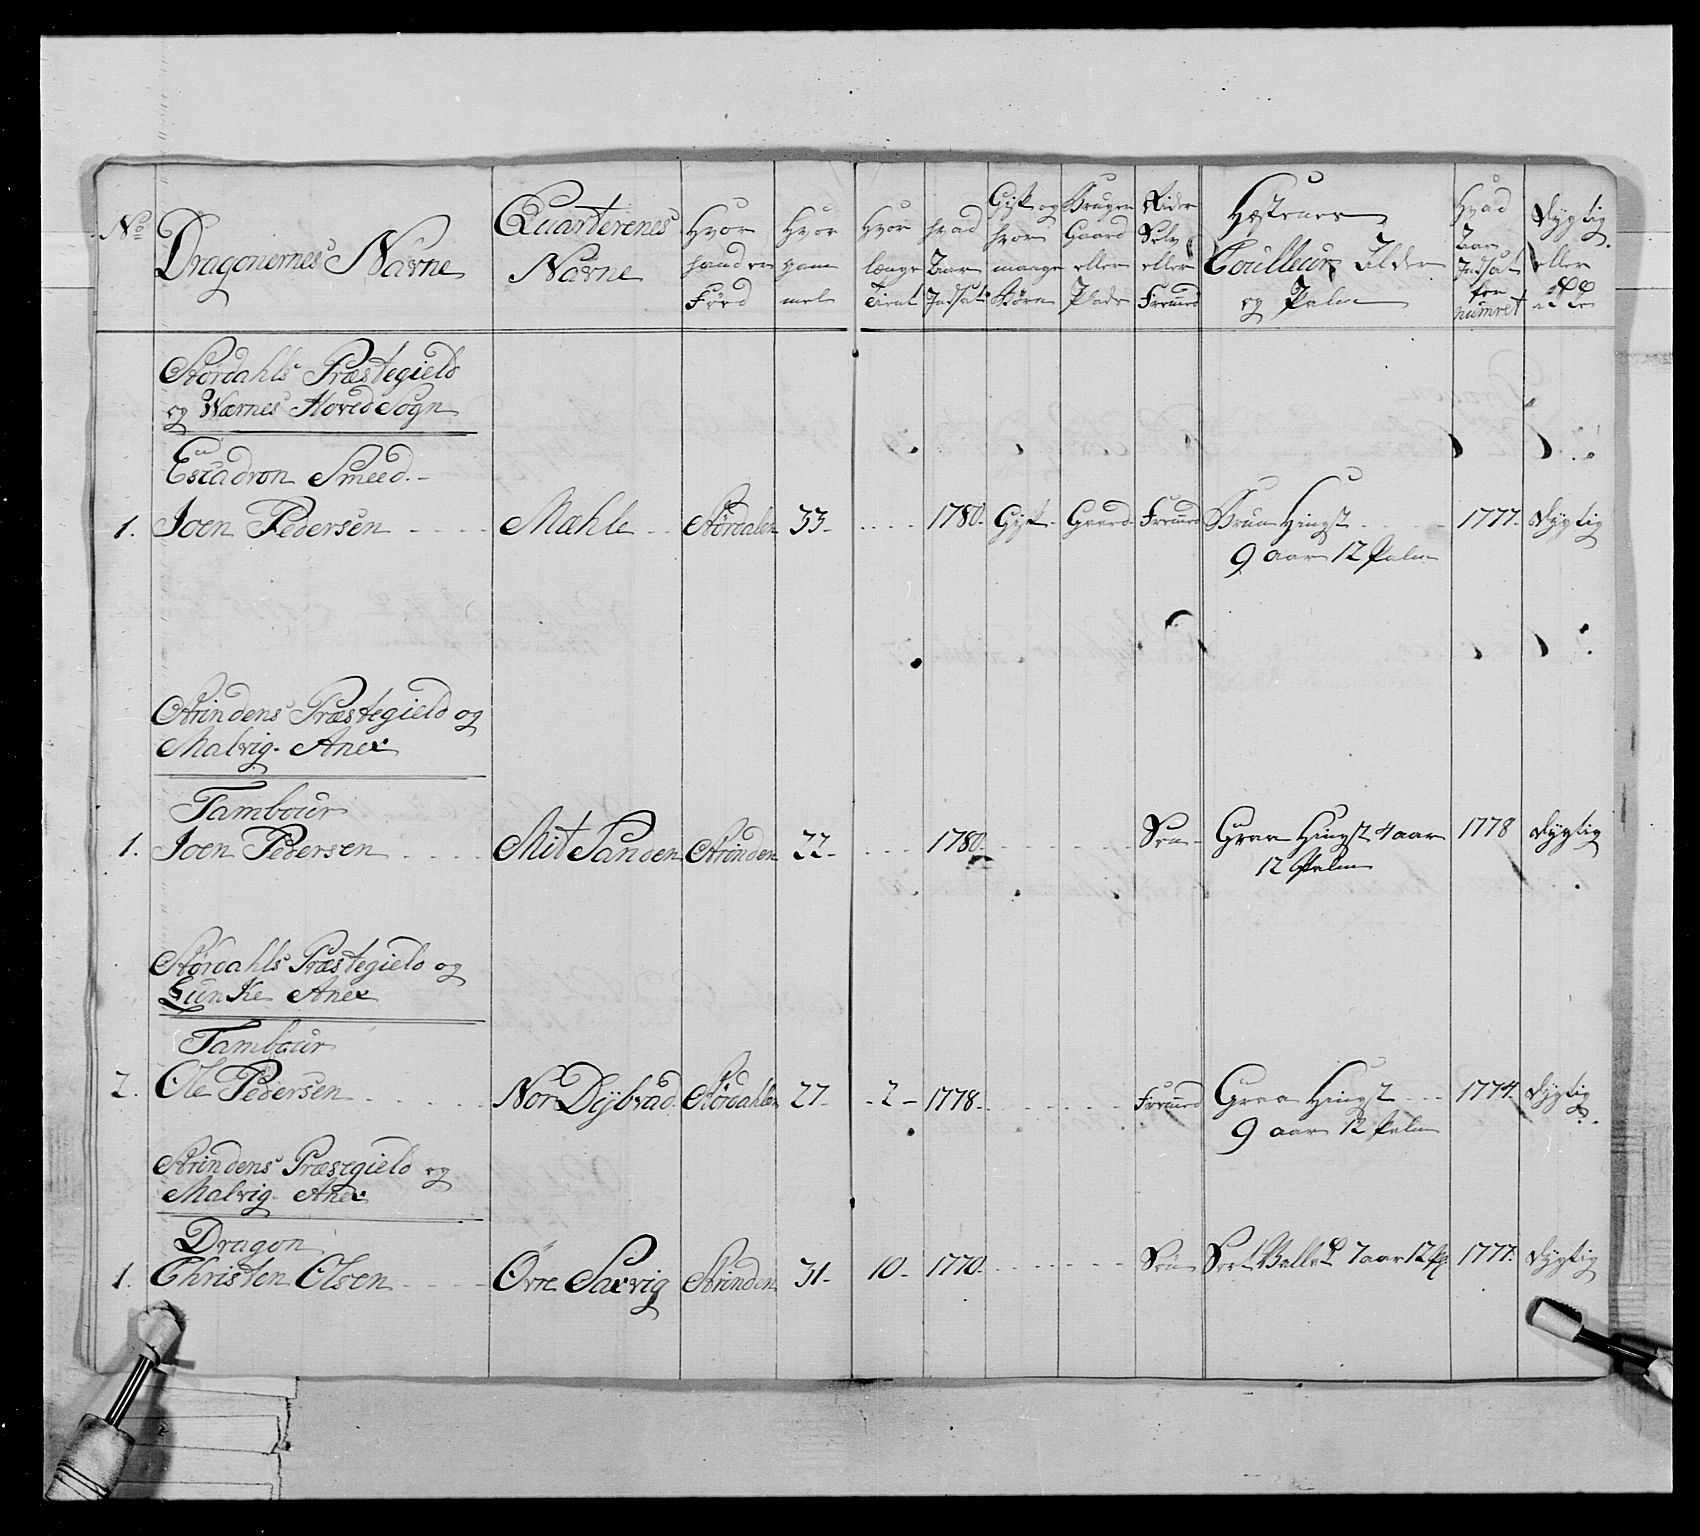 No Dragonernes Navne Quarterenes Navne Hvor hand er Fød Hvor gam mel Hvor længe Tient hvad Aar Indsat Gift og hvor mange Børn Bruger Gaard eller Plads Rider Selv eller Fremmed Hæstenes Coulleur Alder og Palm Hvad Aar Indsat for numret Dygtig eller ikke
Størdahls Præstegield
og Wærnes Hoved Sogn
Escadron Smeed.
1. Joen Pedersen Mæhle Størdalen 33. 1780. Gift. Gaard Fremmed Brun Hingst 1777. Dygtig
9 aar 12 Palm
Strindens Præstegield og
Malvig Anex
Tambour
1. Joen Pedersen Mit Sanden Strinden 22. 1780. Søn Graa Hingst 4 aar 1778 Dygtig
12 Palm
Størdahls Præstegield og
Lunke Anex
Tambour
2. Ole Pedersen Nor Dÿbvad Størdahlen 27. 2 1778. Fremmed Graa Hingst 1774. Dygtig
9 aar 12 Palm
Strindens Præstegield og
Malvig Anex
Dragon
1. Christen Olsen Øvre Saxvig Strinden 31. 10. 1770. Søn Sort Vallak 7 aar 12 P. 1777. Dygtig